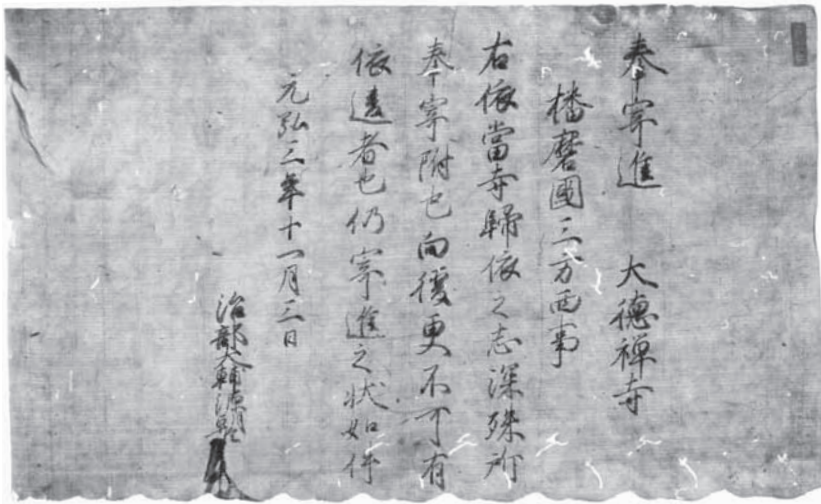 奉寄進　大徳禅寺
播磨國三方西事
右依當寺歸依之志深殊所
奉寄附也向後更不可有
依違者也仍寄進之状如件
元弘三年十一月三日
治部大輔源